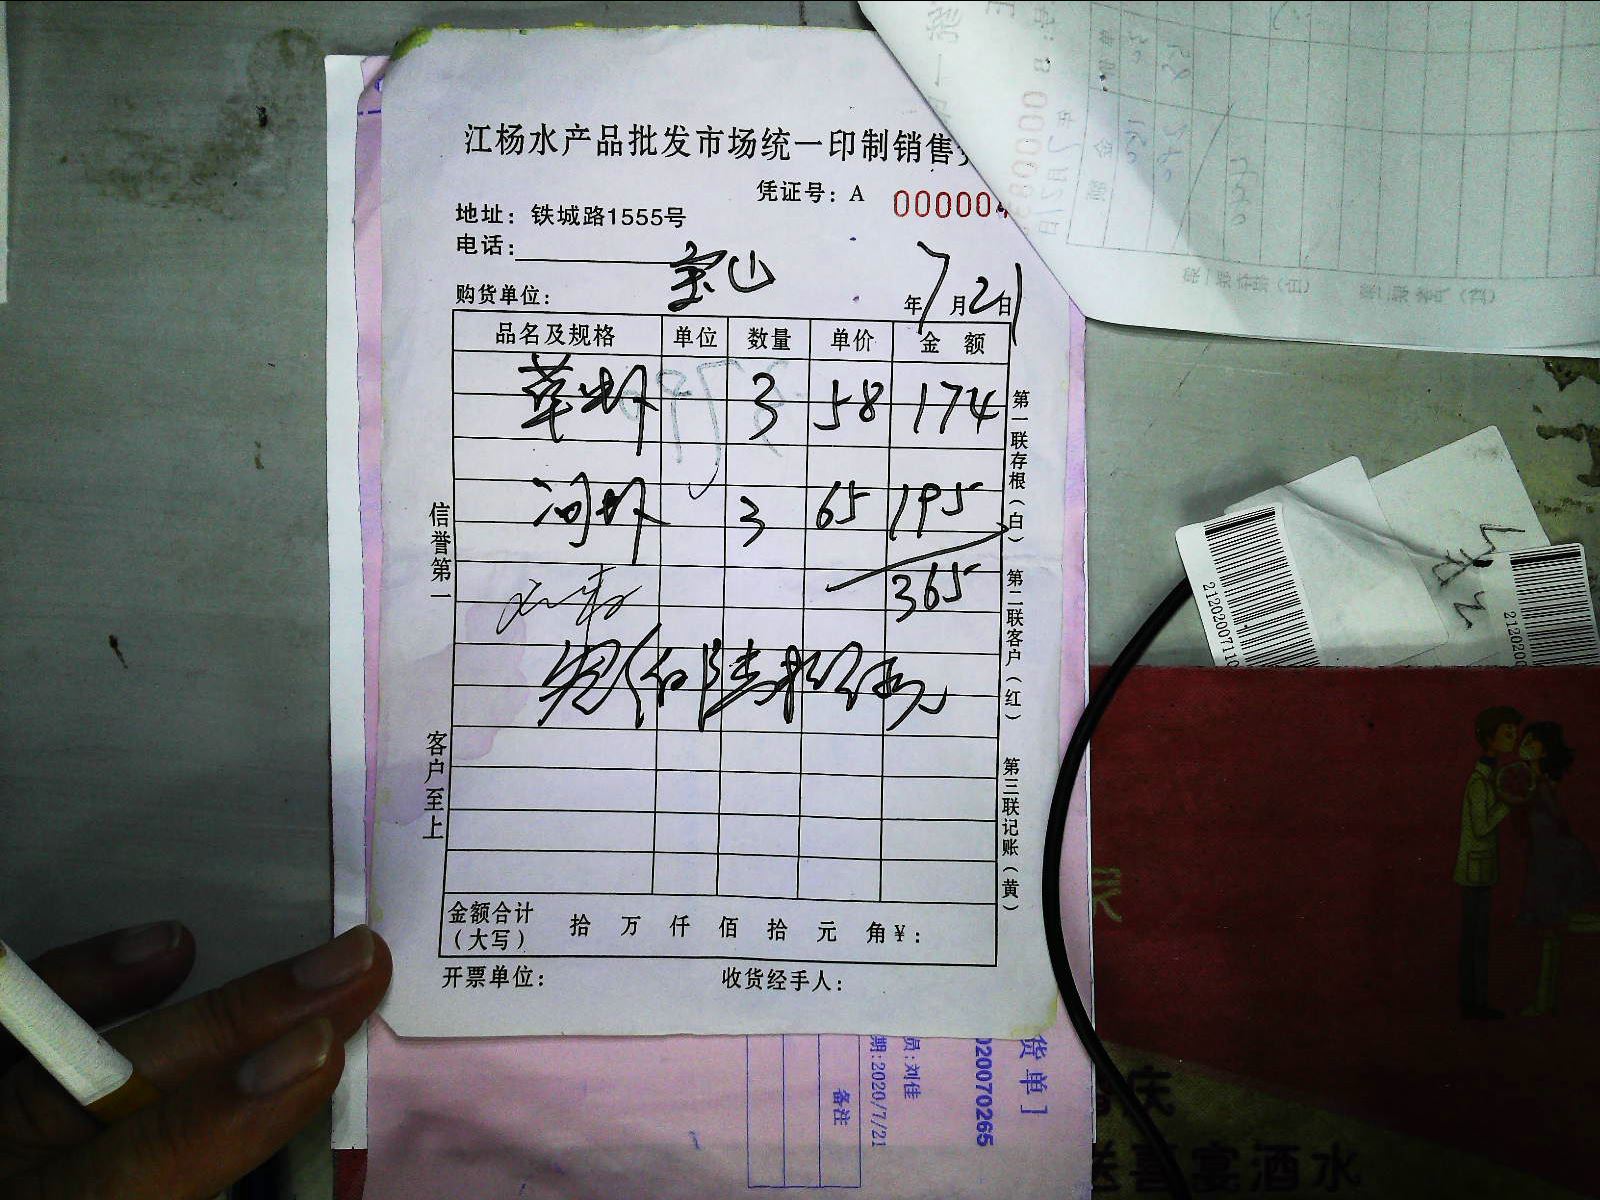 江杨水产品批发市场统一印制销售
凭证号：A 000004
地址：铁城路1555号
电话：
购货单位： 宝山 年7月21日
品名及规格 单位 数量 单价 金额
草虾 3 58 174
河虾 3 65 195
365
叁佰陆拾伍元
金额合计（大写） 拾 万 仟 佰 拾 元 角 ￥：
开票单位： 收货经手人：
信誉第一
客户至上
第一联存根（白）
第二联客户（红）
第三联记账（黄）
货单]
020070265
员:刘佳
期:2020/7/21
备注
21202007110
2120200
庆
送喜宴酒水